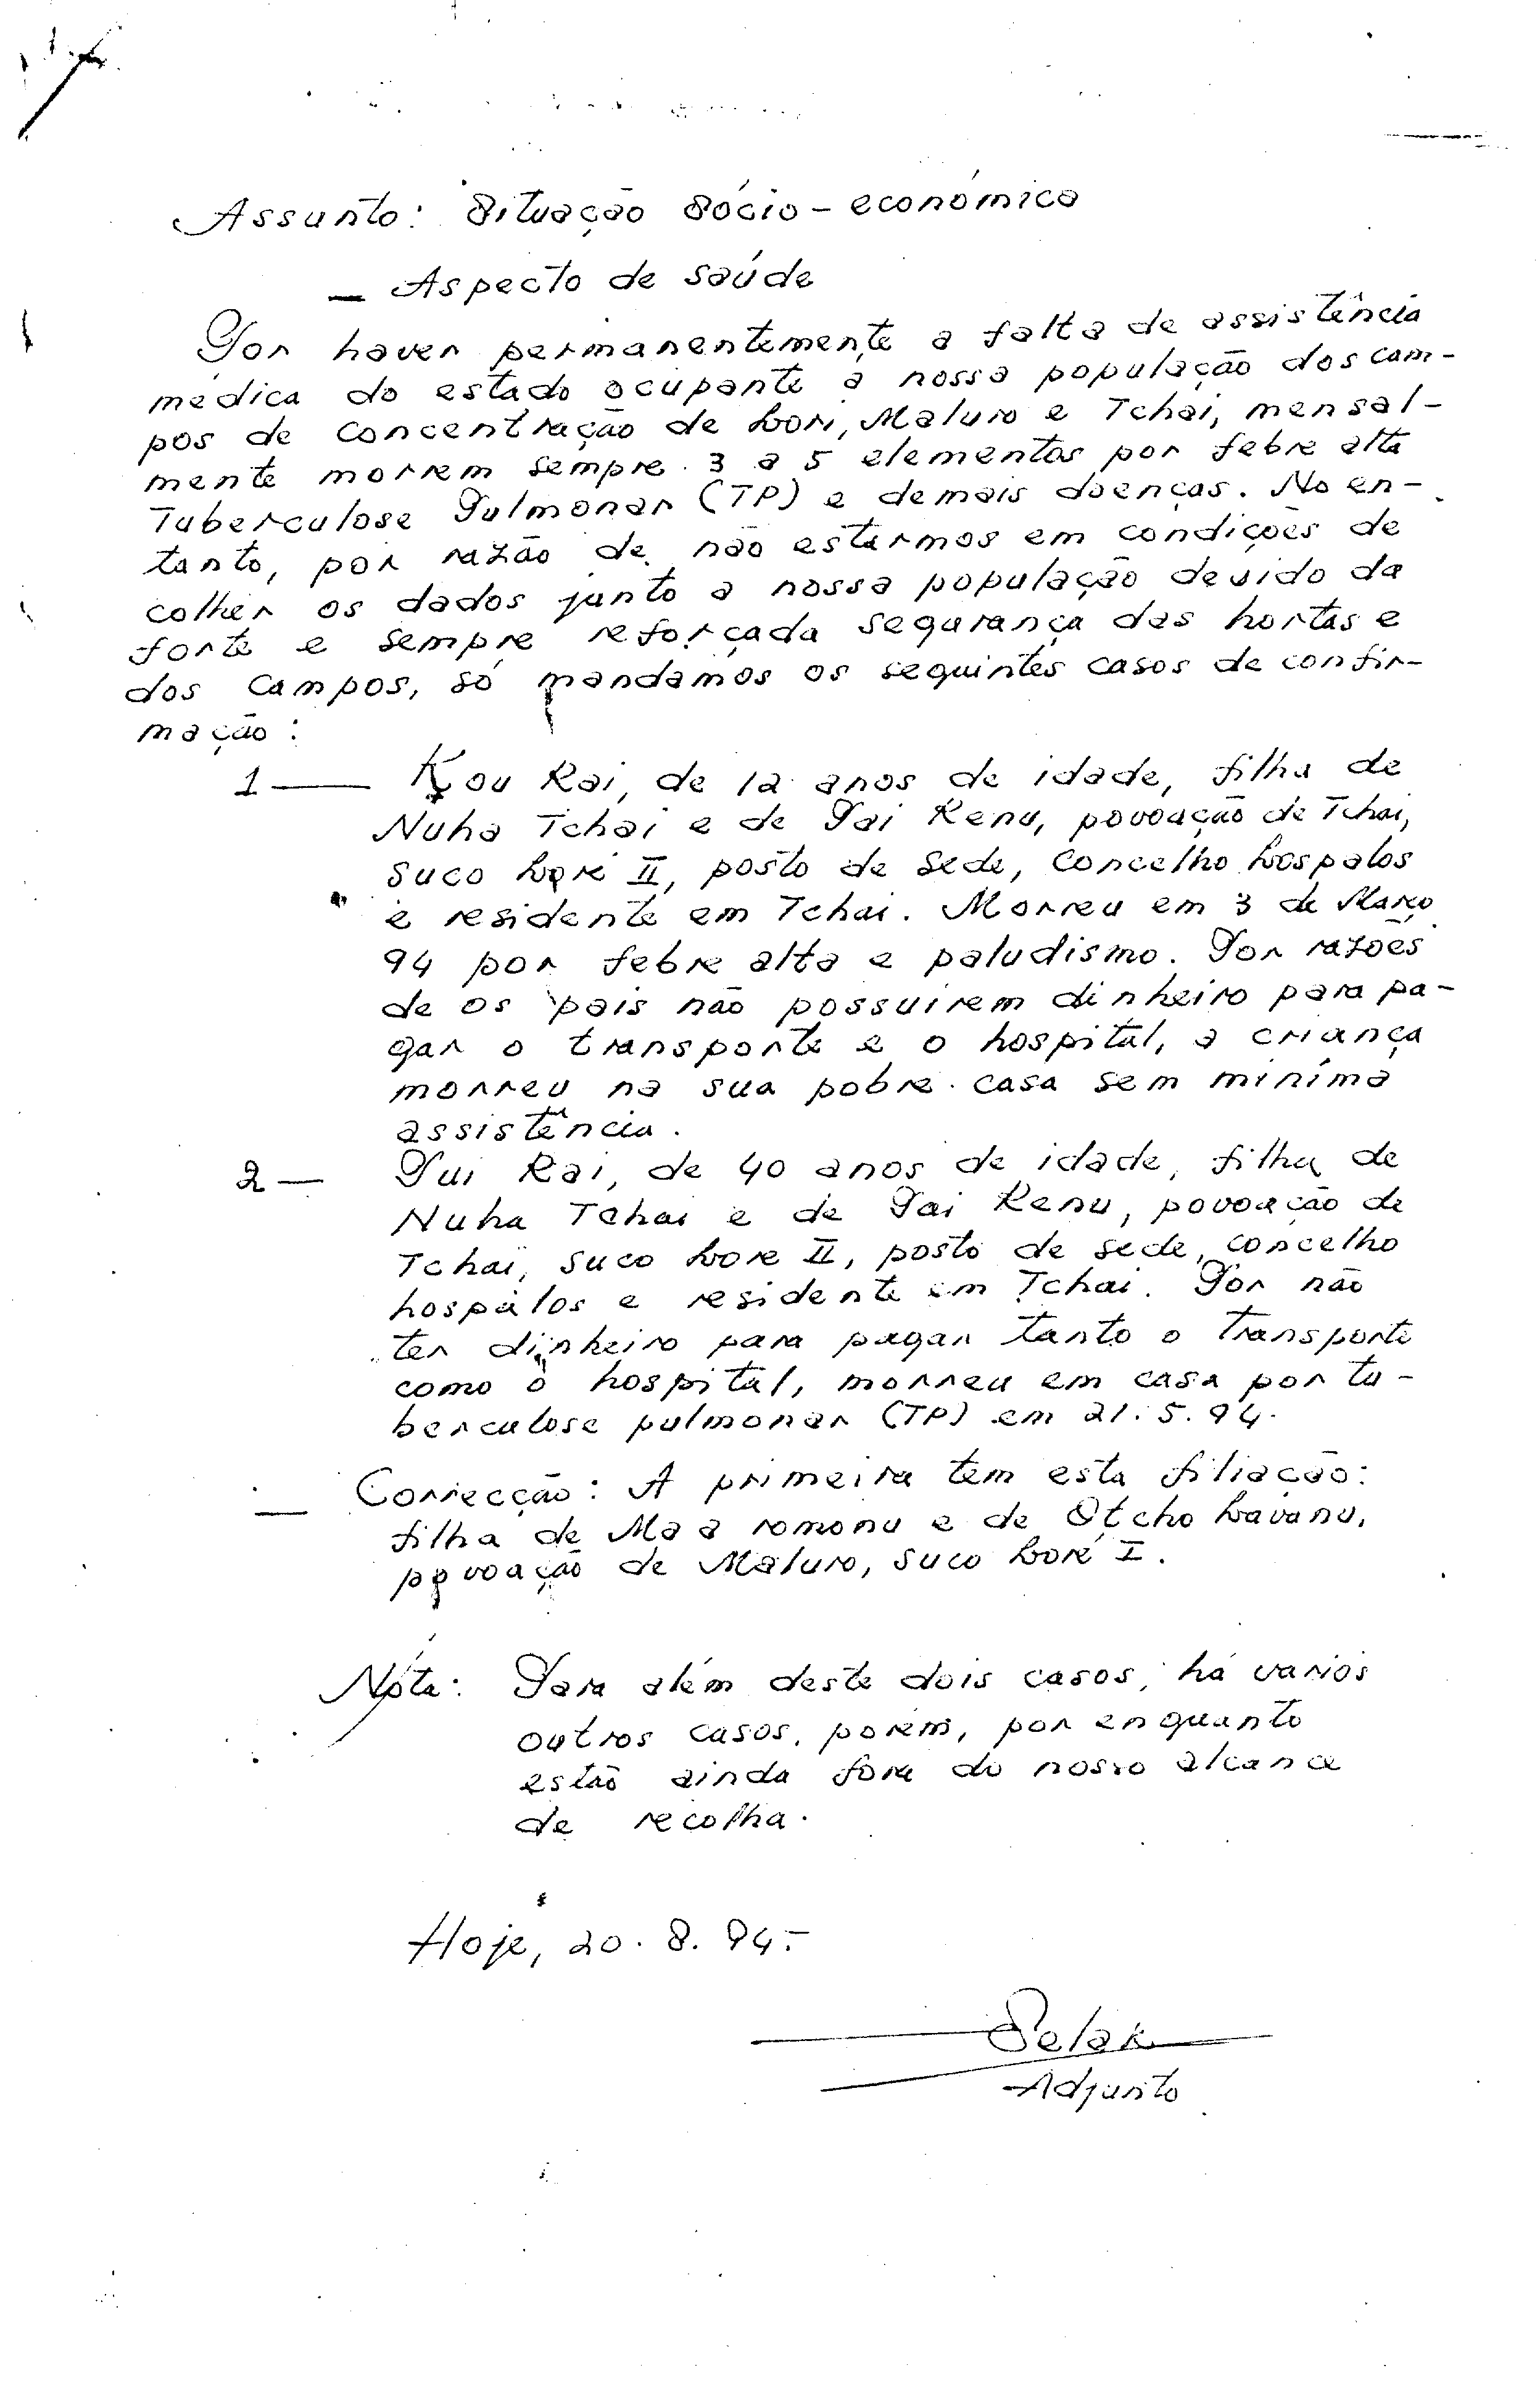 Assunto: Situação Sócio-económica
— Aspecto de saúde
Por haver permanentemente a falta de assistência
médica do estado ocupante à nossa população dos cam-
pos de concentração de Lori, Maluro e Tchai, mensal-
mente morrem sempre 3 a 5 elementos por febre alta
Tuberculose Pulmonar (TP) e demais doenças. No en-
tanto, por razão de não estarmos em condições de
colher os dados junto a nossa população devido da
forte e sempre reforçada segurança das hortas e
dos campos, só mandamos os seguintes casos de confir-
mação:
1 — Kou Rai, de 12 anos de idade, filha de
Nuha Tchai e de Pai Renu, povoação de Tchai,
suco Loré II, posto de sede, concelho Lospalos
e residente em Tchai. Morreu em 3 de Março
94 por febre alta e paludismo. Por razões
de os pais não possuirem dinheiro para pa-
gar o transporte e o hospital, a criança
morreu na sua pobre casa sem minima
assistência.
2 — Pui Rai, de 40 anos de idade, filha de
Nuha Tchai e de Pai Renu, povoação de
Tchai, suco Lore II, posto de sede, concelho
Lospalos e residente em Tchai. Por não
ter dinheiro para pagar tanto o transporte
como o hospital, morreu em casa por tu-
berculose pulmonar (TP) em 21.5.94.
— Correcção: A primeira tem esta filiação:
filha de Maa romonu e de Otcho Lavanu,
povoação de Maluro, suco Loré I.
Nota: Para além deste dois casos, há varios
outros casos, porém, por enquanto
estão ainda fora do nosso alcance
de recolha.
Hoje, 20.8.94.-
Pelak
Adjunto